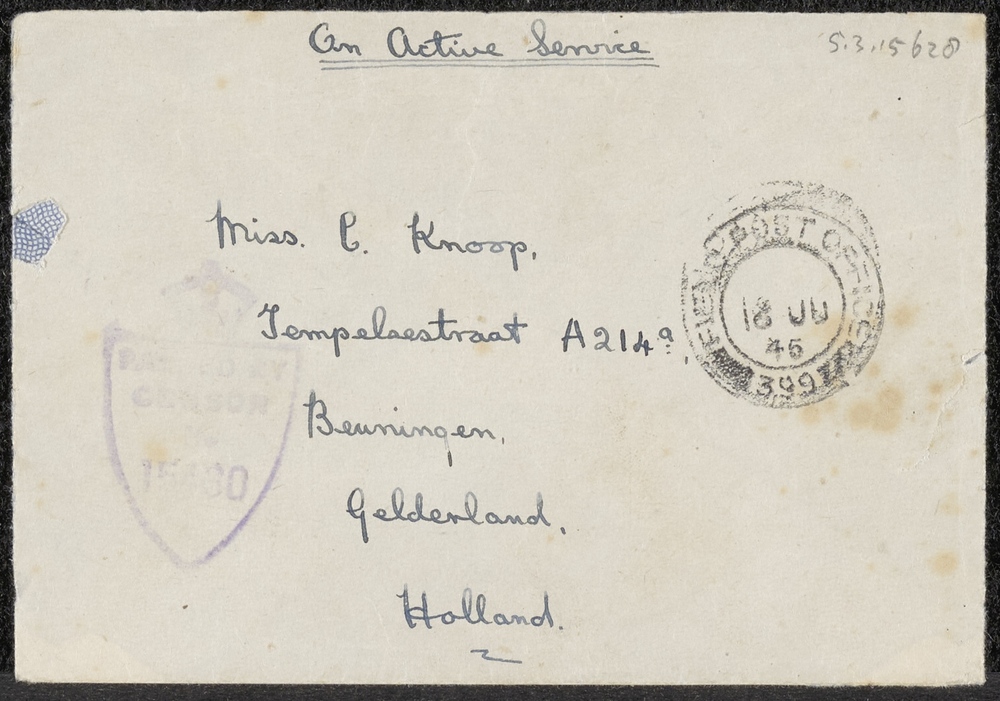 On Active Service
5.3.15628
Miss. C. Knoop,
Tempelsestraat A214a.
Beuningen,
Gelderland,
Holland.
FIELD POST OFFICE
18 JU
45
399
PASSED BY
CENSOR